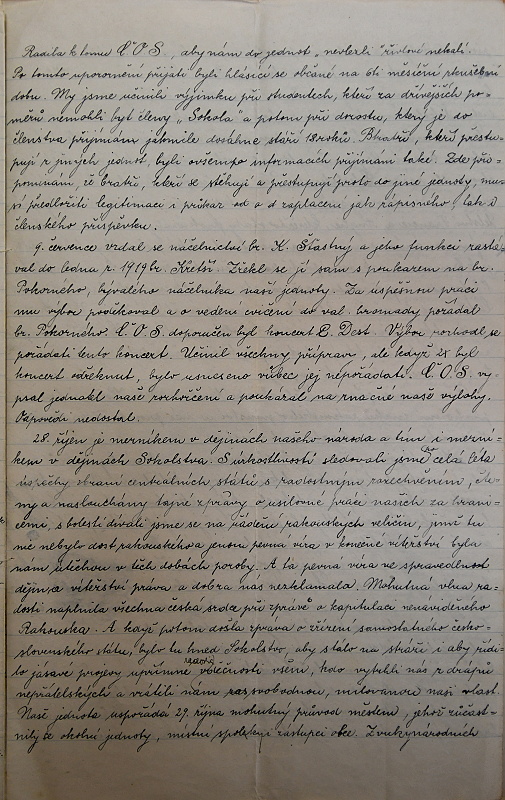 Radila k tomu Č.O.S., aby nám do jednot „nevlezli" živlové nekalí.
Po tomto upozornění přijati byli hlásící se občané na 6ti měsíční zkušební
dobu. My jsme učinili výjimku při studentech, kteří za dřívějších po-
měrů nemohli být členy „Sokola" a potom při dorostu, který je do
členstva přijímán jakmile dosáhne stáří 18 roků. Bratři, kteří přestu-
pují z jiných jednot, byli ovšem po informacích přijímáni také. Zde při-
pomínám, že bratři, kteří se stěhují a přestupují proto do jiné jednoty, mu-
sí předložiti legitimaci i průkaz od o d zaplacení jak zápisného, tak i
členského příspěvku.
9. července vzdal se náčelnictví br. K. Šťastný a jeho funkci zastá-
val do ledna r. 1919 br. Kretší. Zřekl se jí sám s poukazem na br.
Pokorného, bývalého náčelníka naší jednoty. Za úspěšnou práci
mu výbor poděkoval a o vedení cvičení do val. hromady požádal
br. Pokorného. Č.O.S. doporučen byl koncert E. Dest. Výbor rozhodl se
pořádati tento koncert. Učinil všechny přípravy, ale když 2x byl
koncert odřeknut, bylo usneseno vůbec jej nepořádati. Č.O.S. vy-
psal jednatel naše rozhořčení a poukázal na značné naše výlohy.
Odpovědi nedostal.
28. říjen je mezníkem v dějinách našeho národa a tím i mezní-
kem v dějinách Sokolstva. S úzkostlivostí sledovali jsme celá léta
úspěchy zbraní centrálních států s radostným
ny a naslouchány tajné zprávy o usilovné práci našich za hrani-
cemi, s bolestí dívali jsme se na řádění rakouských veličin, jimž tu
nic nebylo dost rakouského a jenom pevná víra v konečné vítězství byla
nám útěchou v těch dobách poroby. A ta pevná víra ve spravedlnost
dějin, a vítězství práva a dobra nás nezklamala. Mohutná vlna ra-
dosti naplnila všechna česká srdce při zprávě o kapitulaci nenáviděného
Rakouska. A když potom došla zpráva o zřízení samostatného česko-
slovenského státu, bylo tu hned Sokolstvo, aby stálo na stráži i aby řídi-
lo jásavé projevy upřímné vděčnosti všem, kdo vytrhli nás z drápů
nepřátelských a vrátili nám zas svobodnou, milovanou naši vlast.
Naše jednota uspořádá 29. října mohutný průvod městem, jehož zúčast-
nily se okolní jednoty, místní spolky i zástupci obce. Zvuky národních